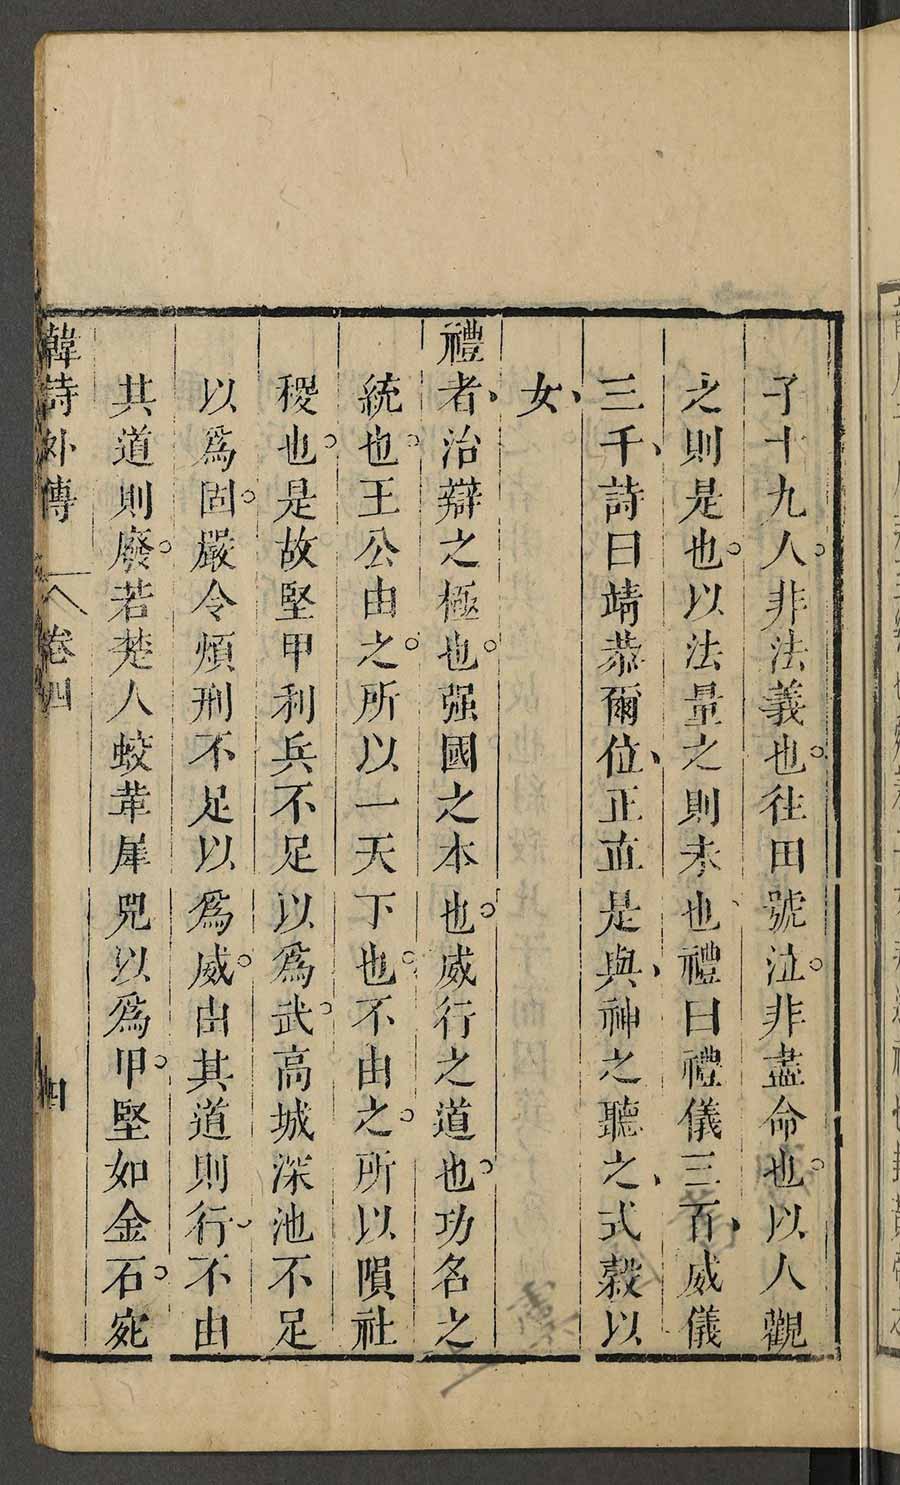 子十九人。非法義也。往田號泣。非盡命也。以人觀
之則是也。以法量之則未也、禮曰禮儀三百、威儀
三千、詩曰靖恭爾位、正直是與、神之聽之、式榖以
女、
禮者、治辯之極也。强國之本也。威行之道也。功名之
統也。王公由之。所以一天下也。不由之。所以隕社
稷也。是故堅甲利兵不足以爲武。高城深池不足
以爲固。嚴令煩刑不足以爲威。由其道則行、不由
其道則廢。若楚人蛟革犀兕以爲甲。堅如金石。宛
韓詩外傳 卷四 四